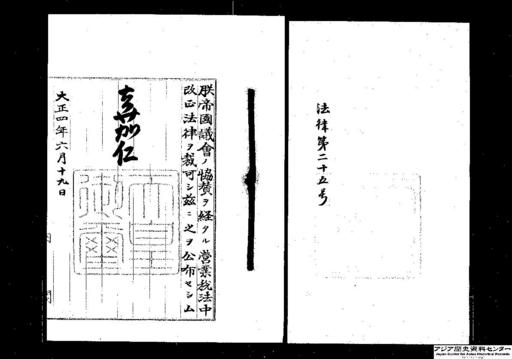 法律第二十五号
朕帝國議會ノ協賛ヲ経タル營業税法中
改正法律ヲ裁可シ茲ニ之ヲ公布セシム
嘉仁
天皇
御璽
大正四年六月十九日
アジア歴史資料センター
Japan Center for Asian Historical Records